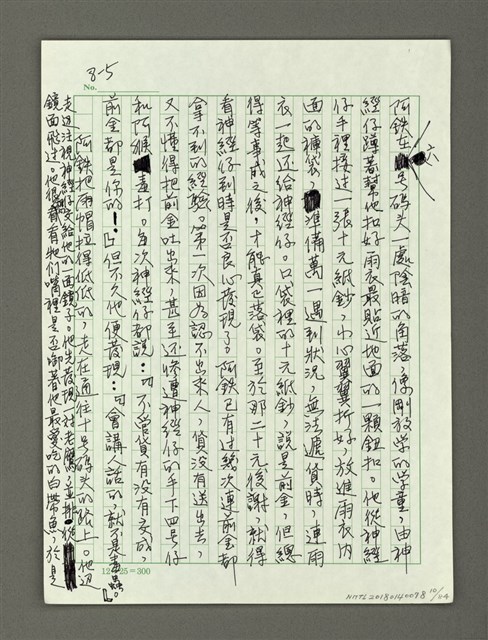 8-5
No.
阿鉄在六号码头一處陰暗的角落,像剛放学的学童,由神
經仔蹲著幫他扣好雨衣最貼近地面的一顆鈕扣。他從神經
仔手裡接过一張十元紙鈔,小心翼翼折好,放進雨衣内
面的褲袋,準備萬一遇到狀況,無法遞貨時,連雨
衣一起还給神經仔。口袋裡的十元紙鈔,說是前金,但總
得等事成之後,才能真正落袋。至於那二十元後謝,就得
看神經仔到時是否良心發現了。阿鉄已有过幾次連前金都
拿不到的經驗。第一次因為認不出來人,貨沒有送出去,
又不懂得把前金吐出來,甚至还慘遭神經仔的手下四号仔
和阿猴毒打。每次神經仔都說:『不管貨有沒有交成,
前金都是你的!』但不久他便發現:『會講人話的,就不是毒蟲。』
阿鉄把雨帽拉得低低的,走在通往十号码头的路上。他边
走边注視神經仔交給他的一面鏡子。他先發現一对老鷹,並排從
鏡面飛过。他很想看牠们嘴裡是否啣著他最愛吃的白帶魚,於是
12×25=300
NMTL20180140098
10/114